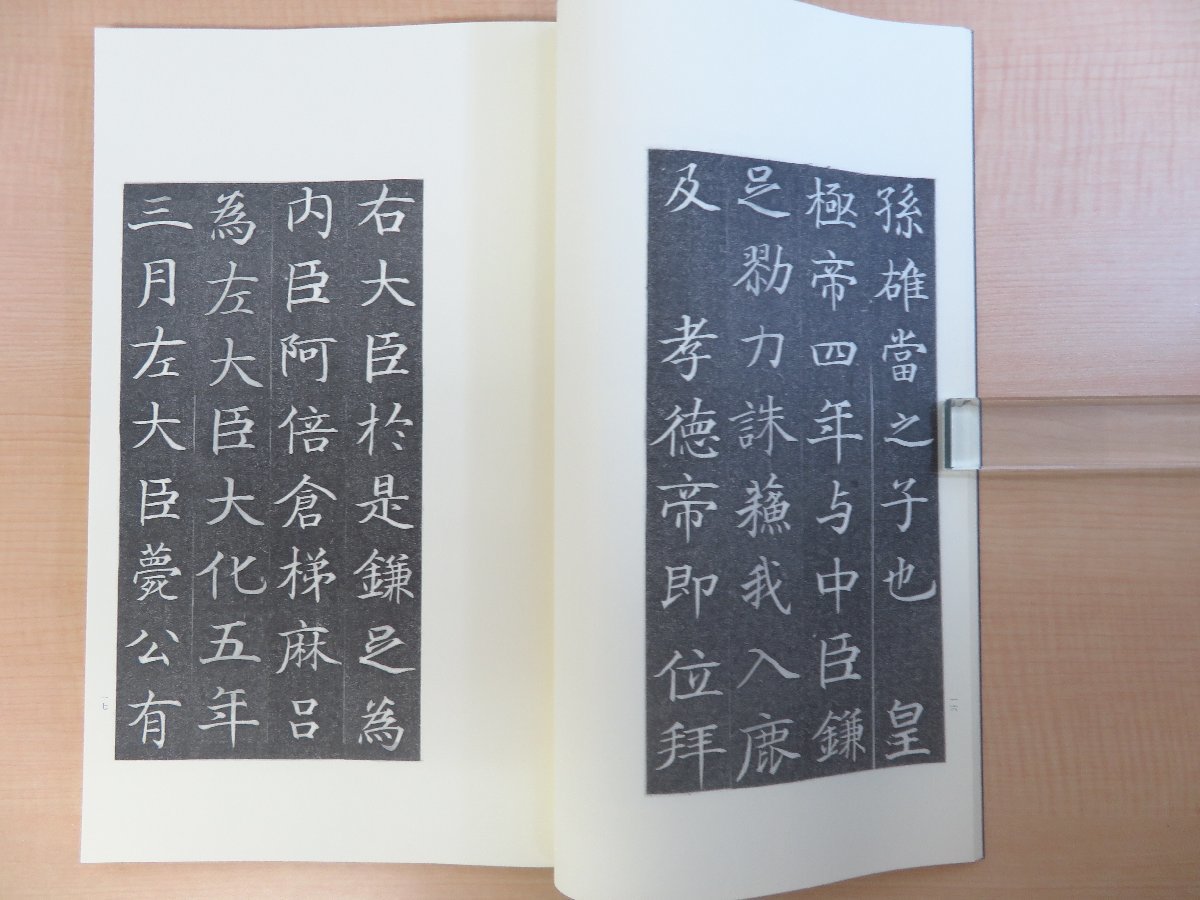 孫雄當之子也 皇
極帝四年与中臣鎌
足勠力誅蘓我入鹿
及 孝德帝即位拜
右大臣於是鎌足為
内臣阿倍倉梯麻呂
為左大臣大化五年
三月左大臣薨公有